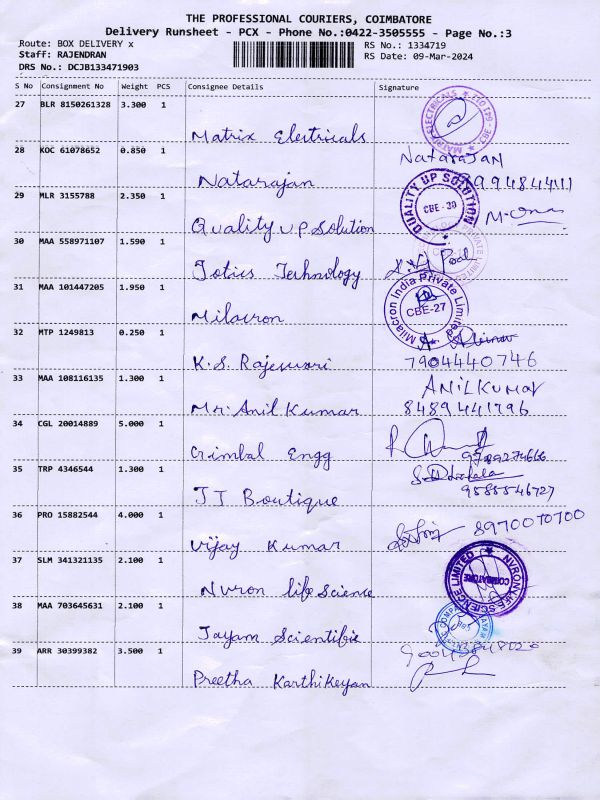 THE PROFESSIONAL COURIERS, COIMBATORE
Delivery Runsheet - PCX - Phone No.:0422-3505555 - Page No.:3
Route: BOX DELIVERY x
RS No.: 1334719
Staff: RAJENDRAN
RS Date: 09-Mar-2024
DRS No.: DCJB133471903
S No Consignment No Weight PCS Consignee Details Signature
27 BLR 8150261328 3.300 1
Matrix Electricals
MATRIX ELECTRICALS
28 KOC 61078652 0.850 1
Natarajan
NATARAJAN
9994844111
29 MLR 3155788 2.350 1
Quality up solution
QUALITY UP SOLUTION
CBE - 30
30 MAA 558971107 1.590 1
Jotics Technology
31 MAA 101447205 1.950 1
Milacron
Milacron India Private Limited
CBE-27
32 MTP 1249813 0.250 1
K.S. Rajeswari
7904440746
33 MAA 108116135 1.300 1
Mr. Anil Kumar
ANILKUMAR
8489441796
34 CGL 20014889 5.000 1
Gimbal Engg
9789274666
35 TRP 4346544 1.300 1
JJ Boutique
9585546727
36 PRO 15882544 4.000 1
Vijay Kumar
8970070700
37 SLM 341321135 2.100 1
Nvron life Science
NVRON LIFE SCIENCE LIMITED
COIMBATORE
38 MAA 703645631 2.100 1
Jayam Scientific
39 ARR 30399382 3.500 1
Preetha Karthikeyan